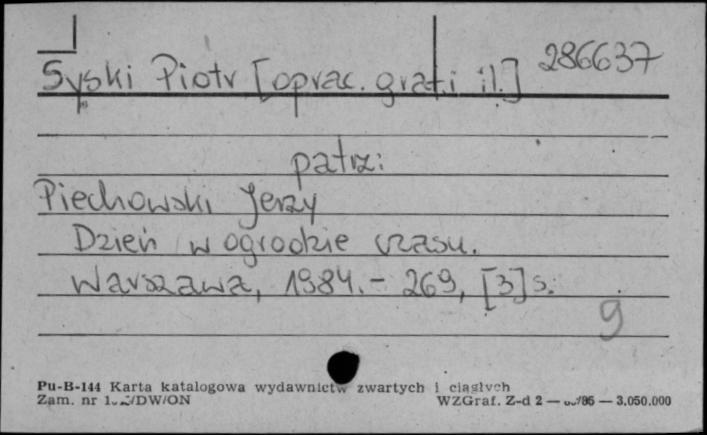 Sypki Piotr [oprac. graf. i il.] 286637
patrz:
Piechowski Jerzy
Dzień w ogrodzie czasu.
Warszawa, 1984. - 269, [3] s.
9
Pu-B-144 Karta katalogowa wydawnictw zwartych i ciągłych
Zam. nr /DW/ON WZGraf. Z-d 2 — /86 — 3.050.000